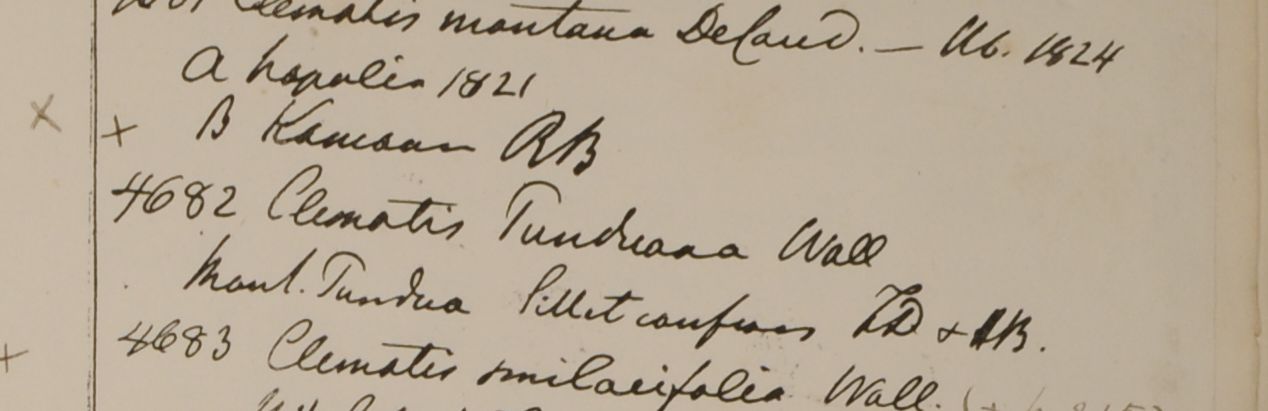 Clematis montana DeCand. — Ub. 1824
A Napalia 1821
× × B Kamaon RB
4682 Clematis Tundeana Wall
Mont. Tundua Sillet confinis FD + RB.
4683 Clematis smilacifolia Wall.